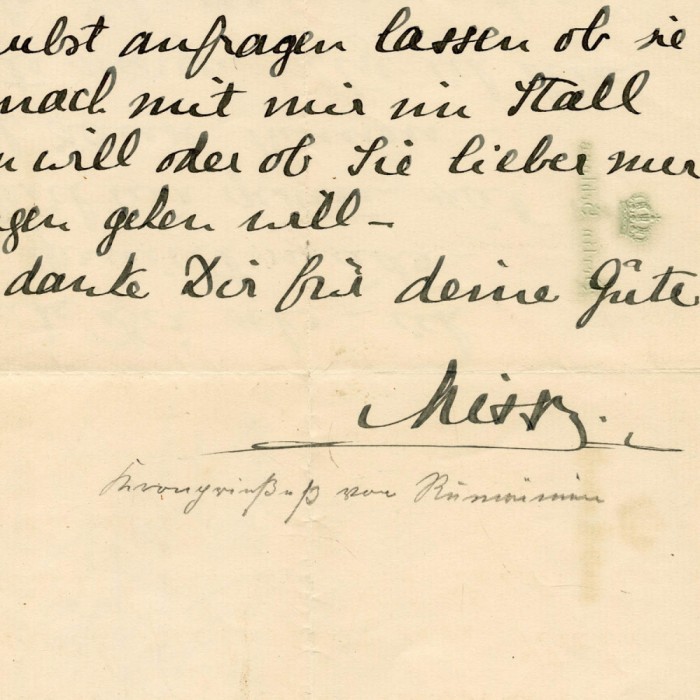 ubst anfragen lassen ob sie
nach mit mir im Stall
n will oder ob Sie lieber nur
gen gehen will –
danke Dir für deine Güte
Missy.
Kronprinzeß von Rumänien